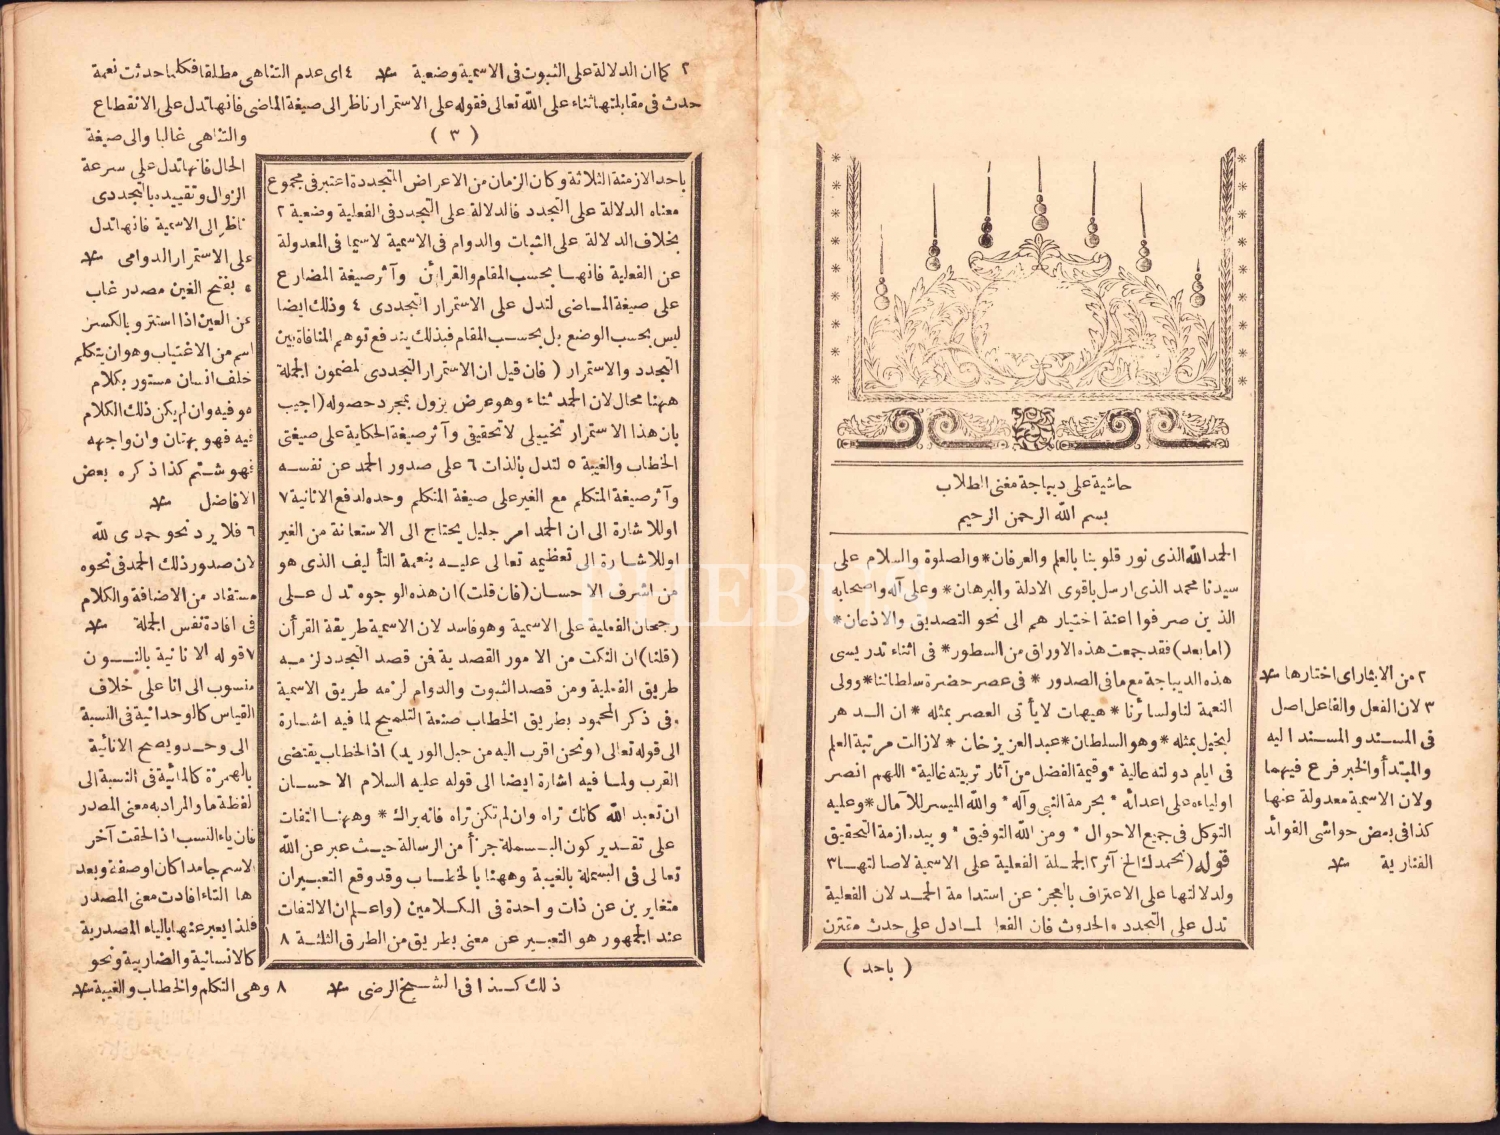 حاشية على ديباجة مغنى الطلاب
بسم الله الرحمن الرحيم
الحمد لله الذى نور قلوبنا بالعلم والعرفان * والصلوة والسلام على
سيدنا محمد الذى ارسل باقوى الادلة والبرهان * وعلى آله واصحابه
الذين صرفوا اعنة اختيارهم الى نحو التصديق والاذعان *
(اما بعد) فقد جمعت هذه الاوراق من السطور * فى اثناء تدريسى
هذه الديباجة مع ما فى الصدور * فى عصر حضرة سلطاننا * وولى
النعمة لنا ولسائرنا * هيهات لا يأتى العصر بمثله * ان الدهر
لبخيل بمثله * وهو السلطان * عبد العزيز خان * لا زالت مرتبة العلم
فى ايام دولته عالية * وقيمة الفضل من آثار تربيته غالية * اللهم انصر
اولياءه على اعدائه * بحرمة النبى وآله * والله الميسر للآمال * وعليه
التوكل فى جميع الاحوال * ومن الله التوفيق * وبيده ازمة التحقيق
قوله (نحمدك الخ آثر ٢ الجملة الفعلية على الاسمية لاصالتها ٣
ولدلالتها على الاعتراف بالعجز عن استدامة الحمد لان الفعلية
تدل على التجدد والحدوث فان الفعل لما دل على حدث مقترن
( باحد )
٢ من الايثار اى اختارها
٣ لان الفعل والفاعل اصل
فى المسند والمسند اليه
والمبتدأ والخبر فرع فيهما
ولان الاسمية معدولة عنها
كذا فى بعض حواشى الفوائد
الفنارية
٢ كما ان الدلالة على الثبوت فى الاسمية وضعية ٤ اى عدم التناهى مطلقا فكلما حدثت نعمة
حدث فى مقابلتها ثناء على الله تعالى فقوله على الاستمرار ناظر الى صيغة الماضى فانها تدل على الانقطاع
( ٣ )
باحد الازمنة الثلاثة وكان الزمان من الاعراض المتجددة اعتبر فى مجموع
معناه الدلالة على التجدد فالدلالة على التجدد فى الفعلية وضعية ٢
بخلاف الدلالة على الثبات والدوام فى الاسمية لا سيما فى المعدولة
عن الفعلية فانها بحسب المقام والقرائن وآثر صيغة المضارع
على صيغة الماضى لتدل على الاستمرار التجددى ٤ وذلك ايضا
ليس بحسب الوضع بل بحسب المقام فبذلك يندفع توهم المنافاة بين
التجدد والاستمرار ( فان قيل ان الاستمرار التجددى لمضمون الجملة
ههنا محال لان الحمد ثناء وهو عرض يزول بمجرد حصوله (اجيب
بان هذا الاستمرار تخييلى لا تحقيقى وآثر صيغة الحكاية على صيغتى
الخطاب والغيبة ٥ لتدل بالذات ٦ على صدور الحمد عن نفسه
وآثر صيغة المتكلم مع الغير على صيغة المتكلم وحده لدفع الانانية ٧
او للاشارة الى ان الحمد امر جليل يحتاج الى الاستعانة من الغير
او للاشارة الى تعظيمه تعالى عليه بنعمة التأليف الذى هو
من اشرف الاحسان (فان قلت) ان هذه الوجوه تدل على
رجحان الفعلية على الاسمية وهو فاسد لان الاسمية طريقة القرأن
(قلنا) ان النكت من الامور القصدية فمن قصد التجدد لزمه
طريق الفعلية ومن قصد الثبوت والدوام لزمه طريق الاسمية
وفى ذكر المحمود بطريق الخطاب صنعة التلميح لما فيه اشارة
الى قوله تعالى (ونحن اقرب اليه من حبل الوريد) اذ الخطاب يقتضى
القرب ولما فيه اشارة ايضا الى قوله عليه السلام الاحسان
ان تعبد الله كانك تراه وان لم تكن تراه فانه يراك * وههنا التفات
على تقدير كون البسملة جزأ من الرسالة حيث عبر عن الله
تعالى فى البسملة بالغيبة وههنا بالخطاب وقد وقع التعبيران
متغايرين عن ذات واحدة فى الكلامين (واعلم ان الالتفات
عند الجمهور هو التعبير عن معنى بطريق من الطرق الثلثة ٨
والتناهى غالبا والى صيغة
الحال فانها تدل على سرعة
الزوال وتقييده بالتجددى
ناظر الى الاسمية فانها تدل
على الاستمرار الدوامى
٥ بفتح الغين مصدر غاب
عن العين اذا استتر وبالكسر
اسم من الاغتياب وهو ان يتكلم
خلف انسان مستور بكلام
هو فيه وان لم يكن ذلك الكلام
فيه فهو بهتان وان واجهه
فهو شتم كذا ذكره بعض
الافاضل
٦ فلا يرد نحو حمدى لله
لان صدور ذلك الحمد فى نحوه
مستفاد من الاضافة والكلام
فى افادة نفس الجملة
٧ قوله الانانية بالنون
منسوب الى انا على خلاف
القياس كالوحدانية فى النسبة
الى وحد ويصح الانائية
بالهمزة كالمائية فى النسبة الى
لفظة ما والمراد به معنى المصدر
فان ياء النسب اذا لحقت آخر
الاسم جامدا كان او صفة وبعد
ها التاء افادت معنى المصدر
فلذا يعبر عنها بالياء المصدرية
كالانسانية والضاربية ونحو
ذلك كذا فى الشيخ الرضى ٨ وهى التكلم والخطاب والغيبة
PHEBUS